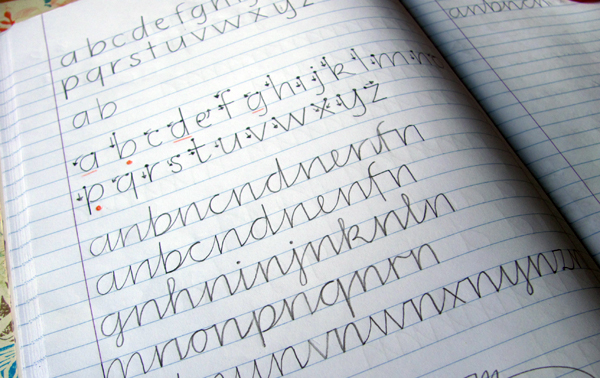 abcdefgh
pqrstuvwxyz
ab
abcdefghijklmn
pqrstuvwxyz
anbncndnenfn
anbcndnenfn
gnhninjnknln
mnonpnqnrn
unvnwnxnynzn
anbncn